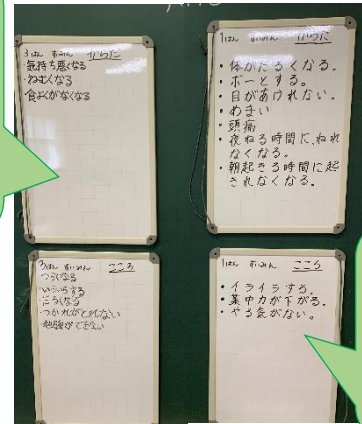 3はん すいみん からだ
・気持ち悪くなる
・ねむくなる
食よくがなくなる
1はん すいみん からだ
・体がだるくなる。
・ボーとする。
・目があけれない。
・めまい
・頭痛
・夜ねる時間に、ねれ
なくなる。
・朝起きる時間に起
きれなくなる。
3はん すいみん こころ
つらくなる
・いらいらする
・だるくなる
・つかれがとれない
・勉強ができない
1はん すいみん こころ
・イライラする。
・集中力が下がる。
・やる気がない。